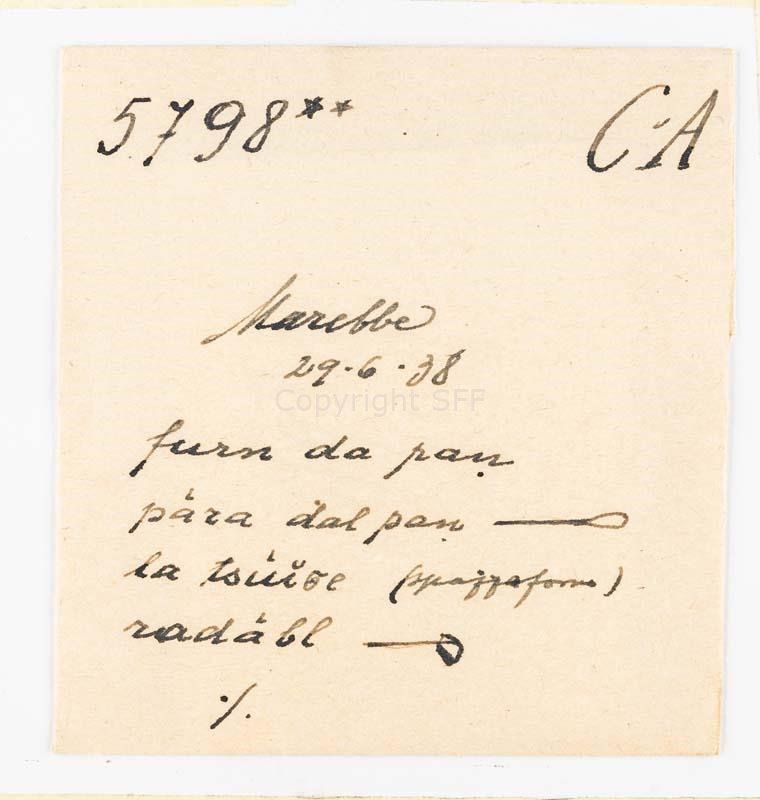 5798** C·A
Marebbe
29·6·38
Copyright SFF
furn da paṇ
pára dal paṇ
la (spazzaforno)
radábl
·/.